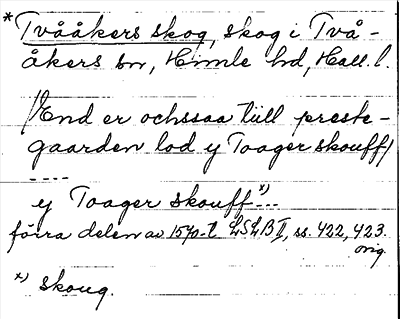 *Tvååkers skog, skog i Två-
åkers sn, Himle hd, Hall. l.
/End er ochssaa tiill preste-
gaarden lod y Toager skouff/
----
ey Toager skouff x) ...
förra delen av 15 LSLB II, ss. 422, 423.
orig.
x) skoug.